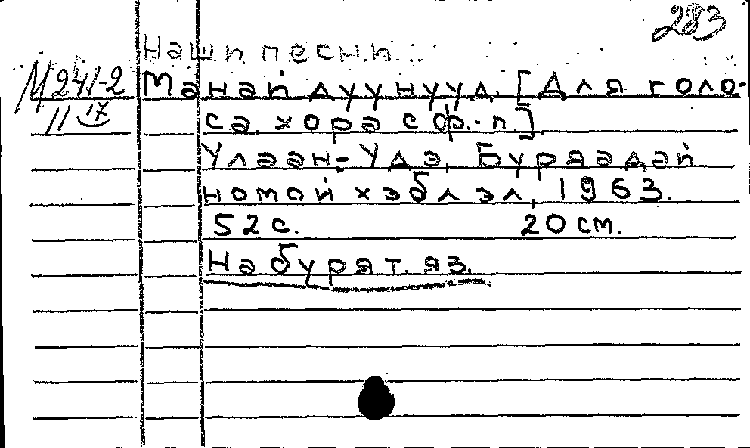 283
Наши песни.
М241-2 Манай дуунууд. [Для голо-
11 17 са хора с ф.-п.]
Улаан-Удэ, Буряадай
номой хэблэл, 1963.
52 с. 20 см.
На бурят. яз.